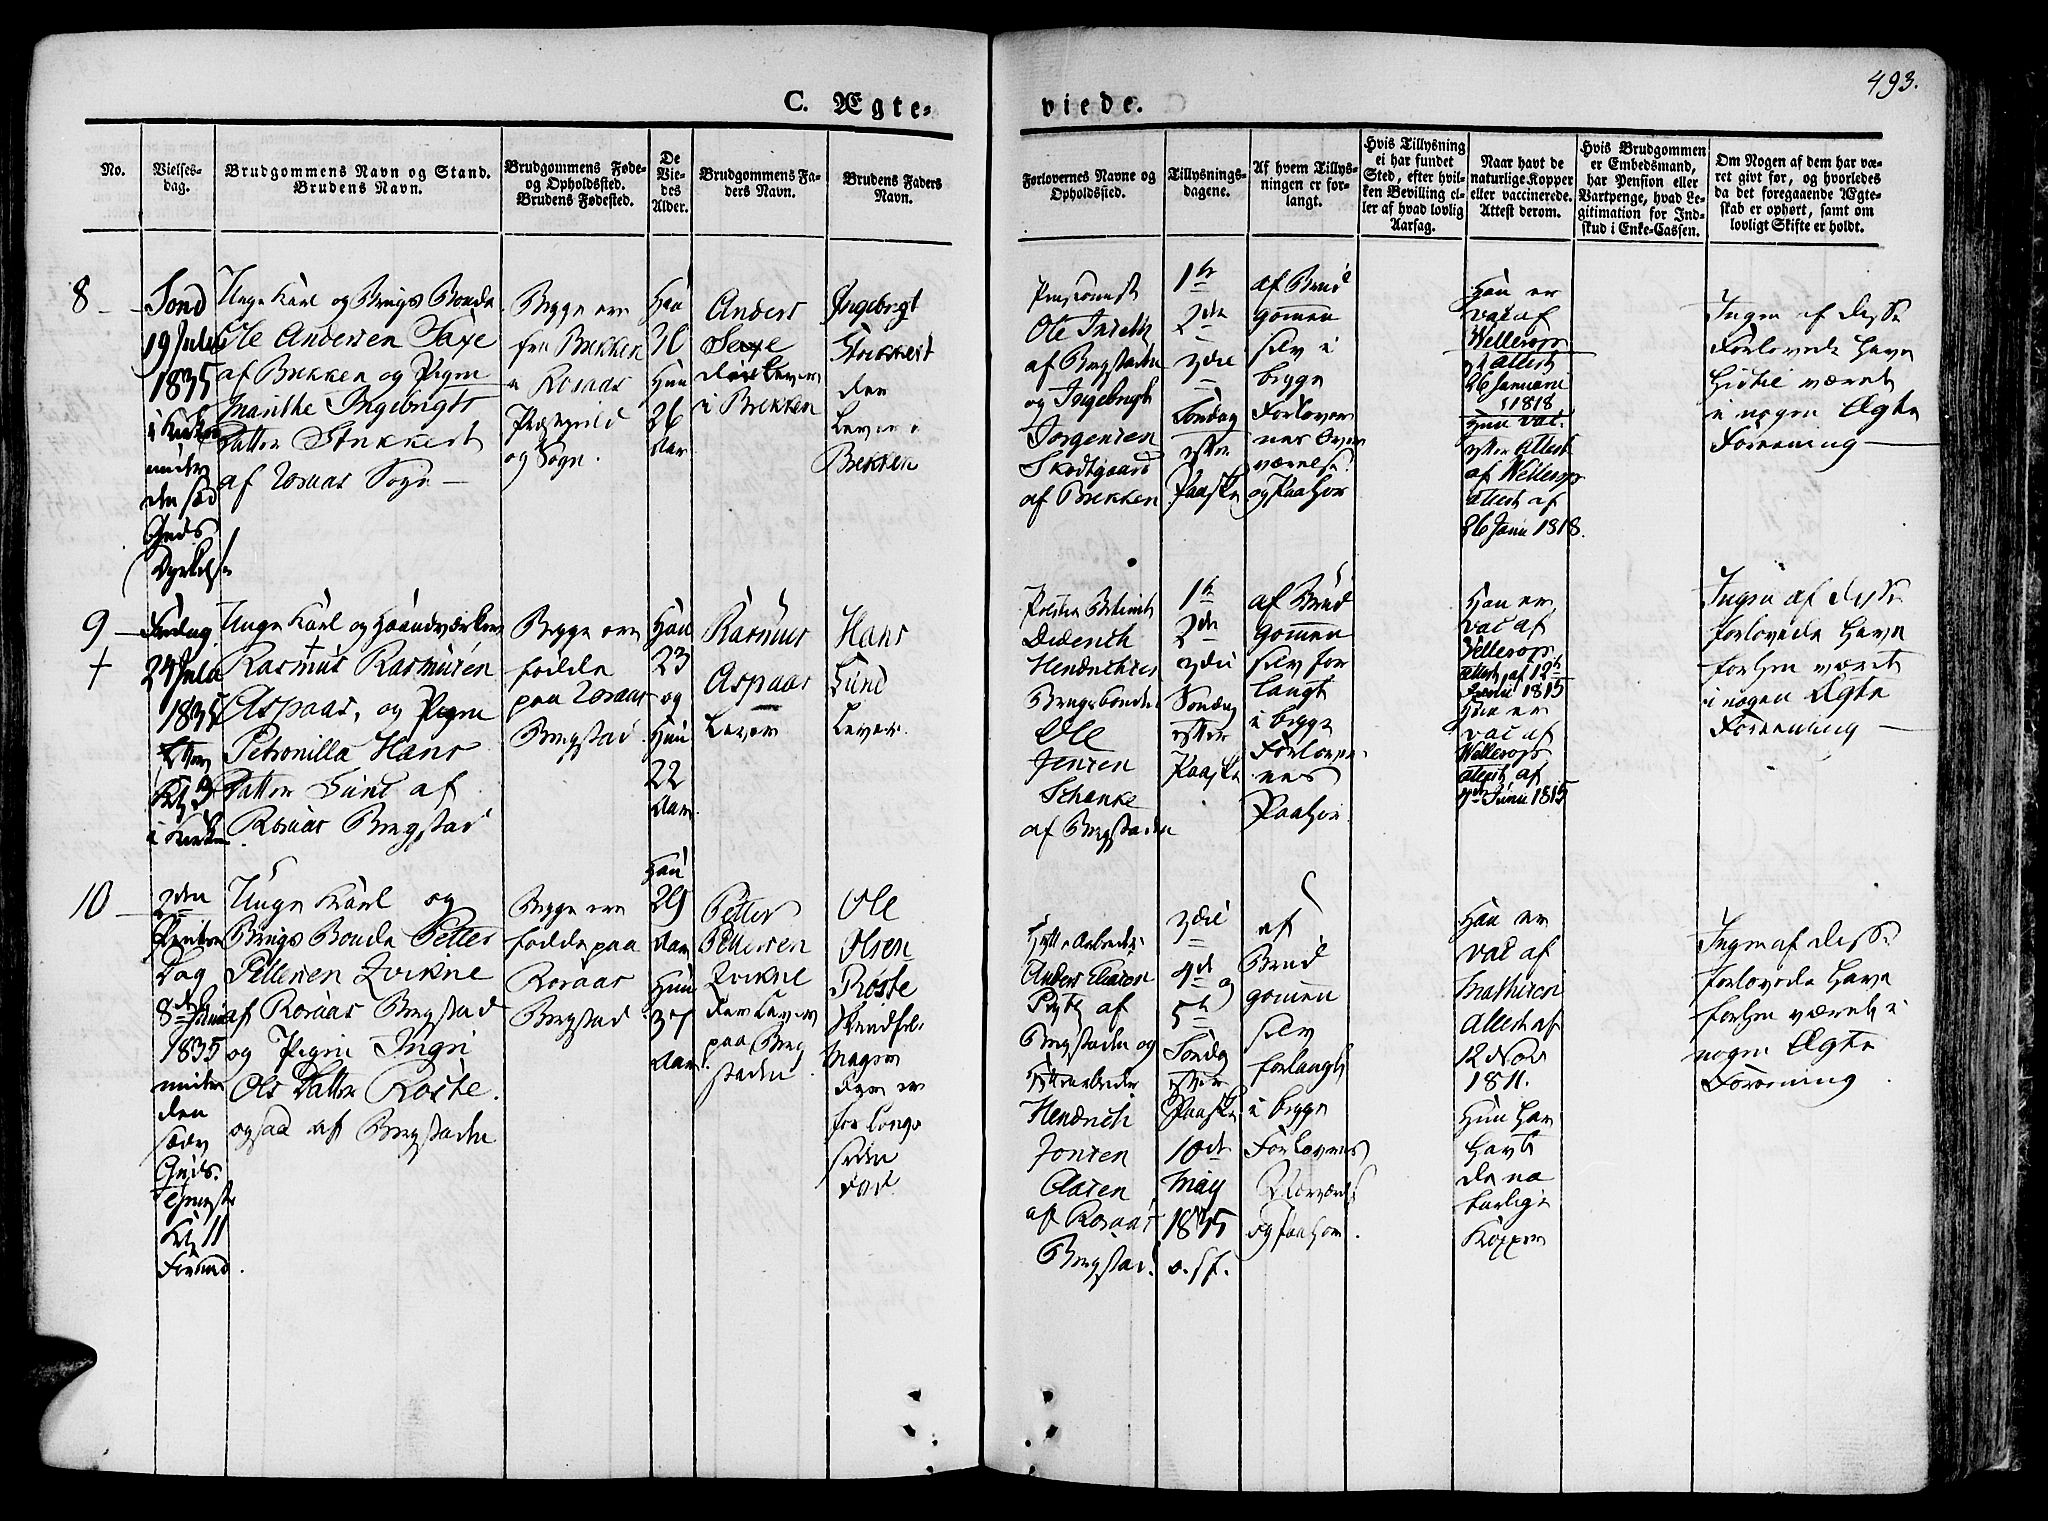 493.
C. Ægte-
viede.
No.
Vielses-
dag.
Brudgommens Navn og Stand.
Brudens Navn.
Brudgommens Føde-
og Opholdssted.
Brudens Fødested.
De
Vie-
des
Alder.
Brudgommens Fa-
ders Navn.
Brudens Faders
Navn.
Forlovernes Navne og
Opholdssted.
Tillysnings-
dagene.
Af hvem Tillys-
ningen er for-
langt.
Hvis Tillysning
ei har fundet
Sted, efter hvil-
ken Bevilling el-
ler af hvad lovlig
Aarsag.
Naar havt de
naturlige Kopper
eller vaccinerede.
Attest derom.
Hvis Brudgommen
er Embedsmand,
har Pension eller
Vartpenge, hvad Le-
gitimation for Ind-
skud i Enke-Cassen.
Om Nogen af dem har væ-
ret givt før, og hvorledes
da det foregaaende Ægte-
skab er ophørt, samt om
lovligt Skifte er holdt.
8
Sønd
19 Julii
1835
i Kirken
under
den
Guds
Dyrkelse
Unge Karl og Brugs Bonde
Ole Andersen Saxe
af Brekken og Pigen
Marithe Ingebrigts
Datter Stikkert
af Roraas Sogn
Begge ere
fra Brekken
i Roraas
Præstegield
og Sogn.
Han
30
Hun
26
Aar
Anders
Saxe
der Lever
i Brekken
Ingebrigt
Stikkert
den
Lever i
Brekken
Ole
af Bergstaden
og Ingebrigt
Jørgensen
Skodtgaard
af Brekken
1te
2den
3die
Søndag
efter
Paaske
af Brud
gomen
selv i
begge
Forlover
nes Over
værelse
og Paahør
Han er
vac af
Wellerops
Attest
26 Januari
1818
Hun vac.
efter Attest
af Wellerops
Attest af
26 Janu 1818.
Ingen af disse
Forlovede have
hidtil været
i nogen Ægte
Forening
9
+
Fredag
24 Julii
1835
Kl 3
i Kirken
Unge Karl og Haandværker
Rasmus Rasmusen
Aspaas, og Pigen
Petronilla Hans
Datter Sund af
Roraas Bergstad
Begge ere
fødde
paa Roraas
Bergstad
Han
23
og
Hun
22
Aar
Rasmus
Aspaas
Lever
Hans
Sund
Lever.
Diderich
Hendrichsen
Brugsbonde
Ole
Jensen
Schanke
af Bergstaden
1te
2den
3die
Søndag
efter
Paaske
af Brud
gomen
selv for
langt
i begge
Forlover
nes
Paahør
Han er
vac af
Vellerops
attest, af 12te
1815
Hun er
vac af
Wellerops
attest af
Junii 1815
Ingen af disse
forlovede have
forhen været
i nogen Ægte
Forening
10
2den
Pintse
Dag
8de Junii
1835
under
den
Guds
Kl 11
Formid.
Unge Karl og
Brugs Bonde Petter
Pettersen Zvikne
af Roraas Bergstad
og Pigen Ingri
Ols Datter Røste.
ogsaa af Bergstaden
Begge ere
fødde paa
Roraas
Bergstad
Han
29
Aar
Hun
37
Aar
Petter
Pettersen
Zvikne
der Lever
paa Berg
staden
Ole
Olsen
Røste
Skindfel-
mager
der er
for Længe
siden
død.
Hytte Arbeider
Anders Eliasen
af
Bergstaden og
Hyttearbeider
Hendrich
Jonsen
Aasen
af Roraas
Bergstad.
3die
4de og
5te
Søndag
efter
Paaske
10de
May
1835
o. s. f.
af
Brud
gomen
selv
forlangt
i begge
Forloveres
Nærværelse
og Paahør.
Han er
vac af
Mathisen
Attest af
12 Nov
1811.
Hun har
havt
de na
turlige
Kopper
Ingen af disse
forlovede have
forhen været i
nogen Ægte
Forening